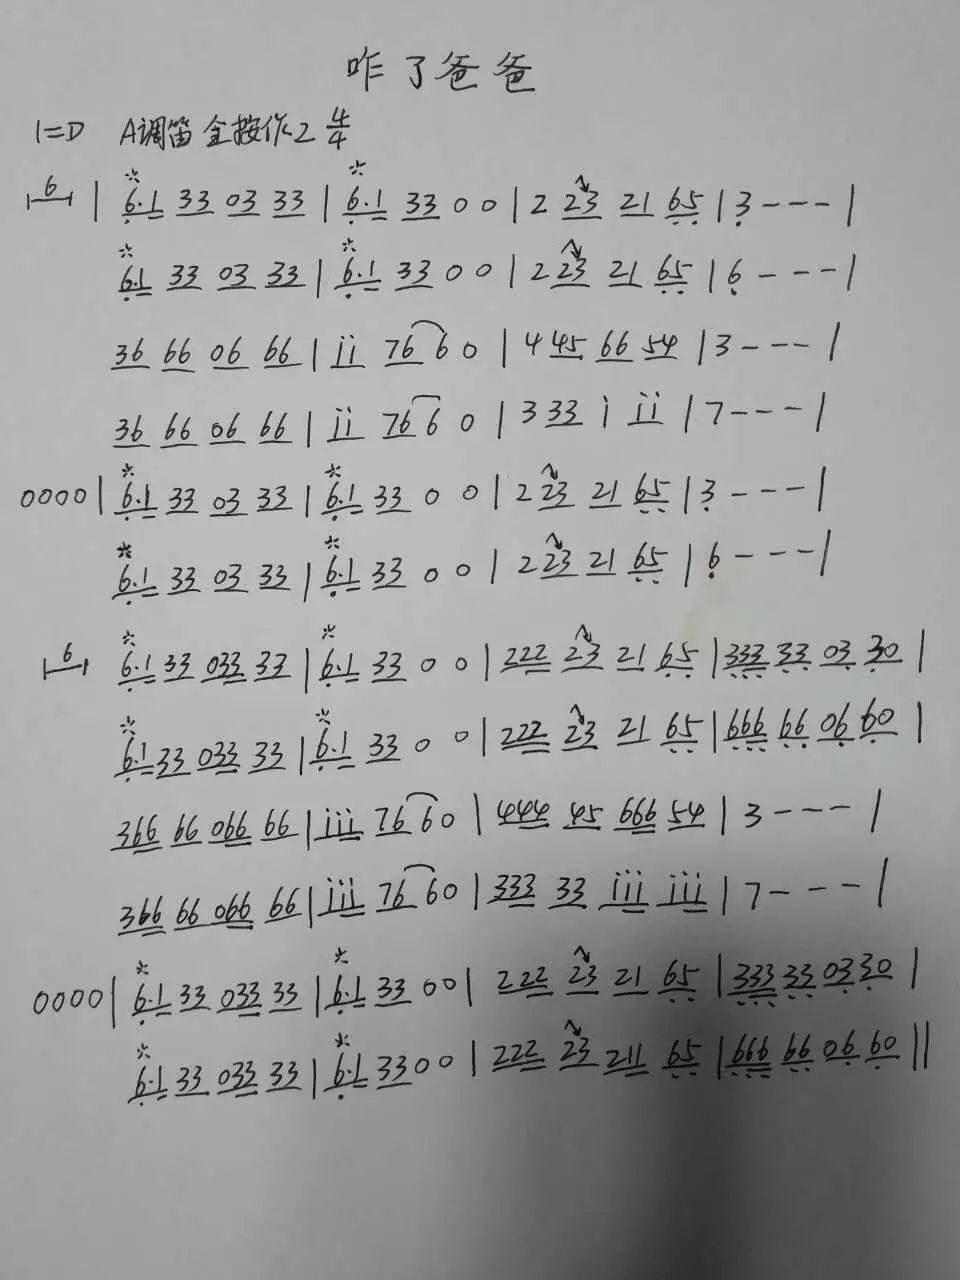 咋了爸爸
1=D A调笛 全按作2 4/4
|—6—| | 6.1 33 03 33 | 6.1 33 0 0 | 2 23 21 65 | 3 - - - |
6.1 33 03 33 | 6.1 33 0 0 | 2 23 21 65 | 6 - - - |
36 66 06 66 | i̇i̇ 76 6 0 | 4 45 66 54 | 3 - - - |
36 66 06 66 | i̇i̇ 76 6 0 | 3 33 i̇ i̇i̇ | 7 - - - |
0000 | 6.1 33 03 33 | 6.1 33 0 0 | 2 23 21 65 | 3 - - - |
6.1 33 03 33 | 6.1 33 0 0 | 2 23 21 65 | 6 - - - |
|—6—| 6.1 33 033 33 | 6.1 33 0 0 | 222 23 21 65 | 333 33 03 30 |
6.1 33 033 33 | 6.1 33 0 0 | 222 23 21 65 | 666 66 06 60 |
366 66 066 66 | i̇i̇i̇ 76 6 0 | 444 45 666 54 | 3 - - - |
366 66 066 66 | i̇i̇i̇ 76 6 0 | 333 33 i̇i̇i̇ i̇i̇i̇ | 7 - - - |
0000 | 6.1 33 033 33 | 6.1 33 0 0 | 222 23 21 65 | 333 33 03 30 |
6.1 33 033 33 | 6.1 33 0 0 | 222 23 211 65 | 666 66 06 60 ||